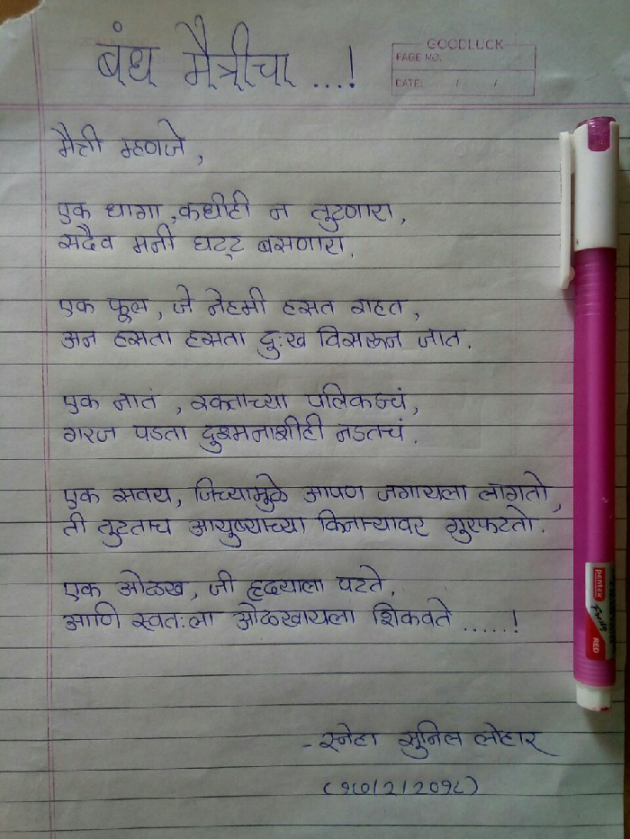 बंध मैत्रीचा ...!
GOODLUCK
PAGE NO.
DATE: / /
मैत्री म्हणजे,
एक धागा, कधीही न तुटणारा,
सदैव मनी घट्ट बसणारा.
एक फूल, जे नेहमी हसत राहत,
अन हसता हसता दुःख विसरून जात.
एक नातं, रक्ताच्या पलिकडचं,
गरज पडता दुश्मनाशीही नडतचं.
एक सवय, जिच्यामुळे आपण जगायला लागतो,
ती तुटताच आयुष्याच्या किनाऱ्यावर गुरफटतो.
एक ओळख, जी हृदयाला पटते,
आणि स्वतःला ओळखायला शिकवते .....!
pentex
RED
- स्नेहा सुनिल लोहार